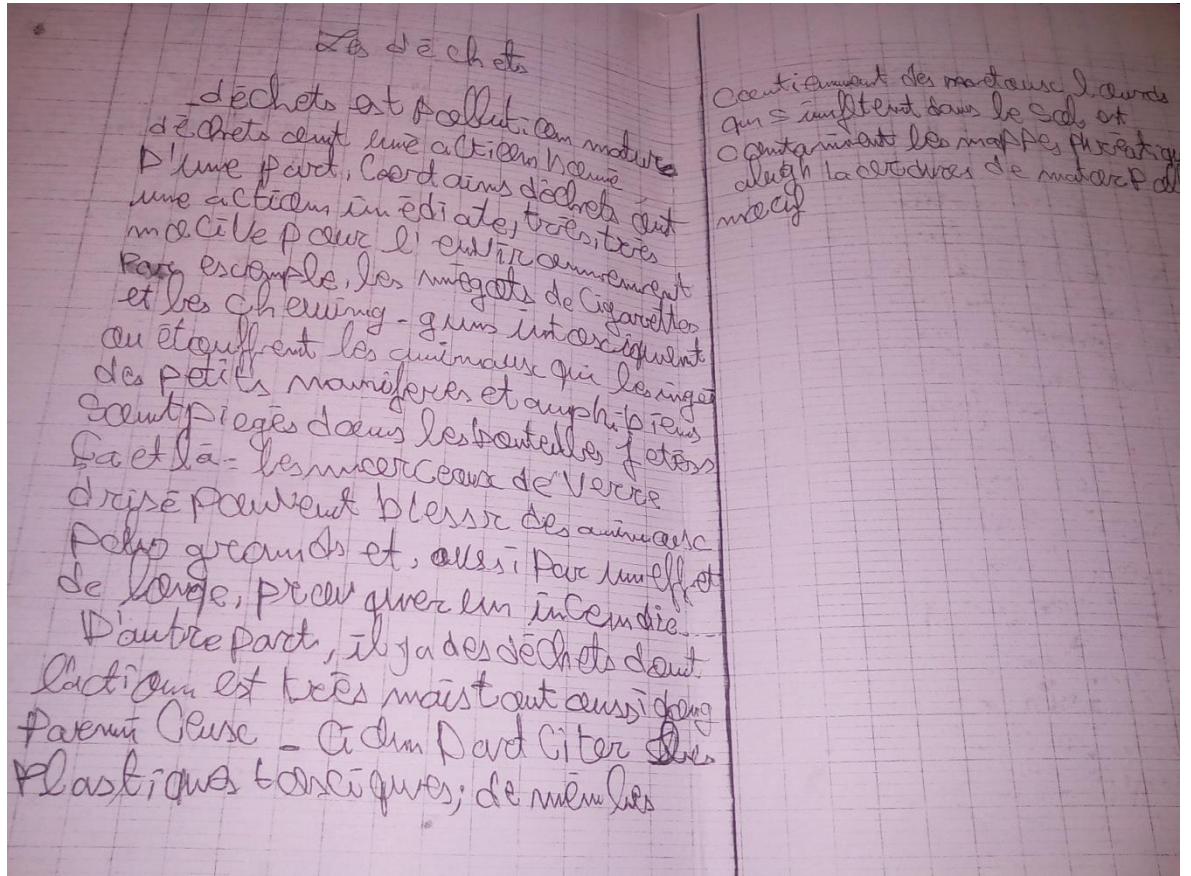 Les déchets
déchets et pollution nature
déchets ont une action nocive
D'une part, Certains déchets ont
une action imédiate, très, très
nocive pour l'environnement
Par exemple, les mégots de Cigarettes
et les chewing-gums intoxiquent
ou étouffent les animaux qui les inge
des petits mamifères et amphibiens
sont piegés dans les bouteilles jetées
Ça et là - les morceaux de Verre
brisé peuvent blessir des animaux
Pelus grands et, aussi par un effet
de loupe, provoquer un incendie
D'autre part, il ya des déchets dont
l'action est très mais tout aussi dang
Parmi Ceux - Ci On Peut Citer les
Plastiques toxiques; de même les
Contiennent des métaux lourds
qui s'infiltent dans le Sol et
Contaminent les nappes phréatiqu
de